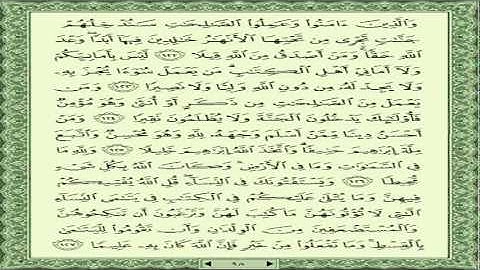 وَالَّذِينَ ءَامَنُوا وَعَمِلُوا الصَّالِحَاتِ سَنُدْخِلُهُمْ
جَنَّاتٍ تَجْرِى مِن تَحْتِهَا الْأَنْهَارُ خَالِدِينَ فِيهَا أَبَدًا وَعْدَ
اللَّهِ حَقًّا وَمَنْ أَصْدَقُ مِنَ اللَّهِ قِيلًا ﴿١٢٢﴾ لَّيْسَ بِأَمَانِيِّكُمْ
وَلَا أَمَانِىِّ أَهْلِ الْكِتَابِ مَن يَعْمَلْ سُوءًا يُجْزَ بِهِ
وَلَا يَجِدْ لَهُ مِن دُونِ اللَّهِ وَلِيًّا وَلَا نَصِيرًا ﴿١٢٣﴾ وَمَن
يَعْمَلْ مِنَ الصَّالِحَاتِ مِن ذَكَرٍ أَوْ أُنثَى وَهُوَ مُؤْمِنٌ
فَأُولَئِكَ يَدْخُلُونَ الْجَنَّةَ وَلَا يُظْلَمُونَ نَقِيرًا ﴿١٢٤﴾ وَمَنْ
أَحْسَنُ دِينًا مِّمَّنْ أَسْلَمَ وَجْهَهُ لِلَّهِ وَهُوَ مُحْسِنٌ وَاتَّبَعَ
مِلَّةَ إِبْرَاهِيمَ حَنِيفًا وَاتَّخَذَ اللَّهُ إِبْرَاهِيمَ خَلِيلًا ﴿١٢٥﴾ وَلِلَّهِ مَا
فِى السَّمَاوَاتِ وَمَا فِى الْأَرْضِ وَكَانَ اللَّهُ بِكُلِّ شَىْءٍ
مُّحِيطًا ﴿١٢٦﴾ وَيَسْتَفْتُونَكَ فِى النِّسَاءِ قُلِ اللَّهُ يُفْتِيكُمْ
فِيهِنَّ وَمَا يُتْلَى عَلَيْكُمْ فِى الْكِتَابِ فِى يَتَامَى النِّسَاءِ
الَّاتِى لَا تُؤْتُونَهُنَّ مَا كُتِبَ لَهُنَّ وَتَرْغَبُونَ أَن تَنكِحُوهُنَّ
وَالْمُسْتَضْعَفِينَ مِنَ الْوِلْدَانِ وَأَن تَقُومُوا لِلْيَتَامَى
بِالْقِسْطِ وَمَا تَفْعَلُوا مِنْ خَيْرٍ فَإِنَّ اللَّهَ كَانَ بِهِ عَلِيمًا ﴿١٢٧﴾
٩٨